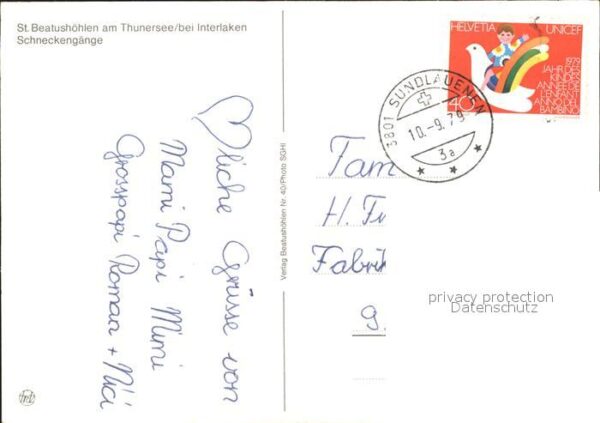 St. Beatushöhlen am Thunersee/bei Interlaken
Schneckengänge
♡liche Grüsse von
Mami Papi Mimi
Grosspapi Roman + Nici
Verlag Beatushöhlen Nr. 40/Photo SGHI
HELVETIA UNICEF
1979
JAHR DES
KINDES
ANNÉE DE
L'ENFANT
ANNO DEL
BAMBINO
40
3801 SUNDLAUENEN
10.-9.79
3a
Fam
H.
Fabrik
privacy protection
Datenschutz